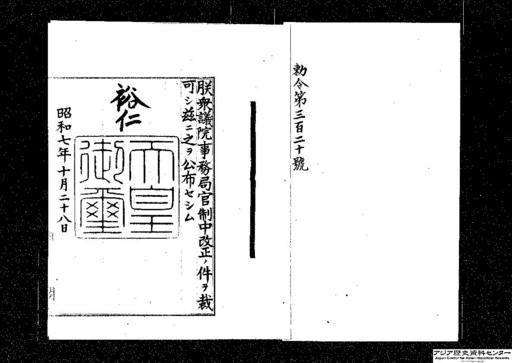 勅令第三百二十號
朕衆議院事務局官制中改正ノ件ヲ裁
可シ茲ニ之ヲ公布セシム
裕仁
天皇
御璽
昭和七年十月二十八日
アジア歴史資料センター
Japan Center for Asian Historical Records